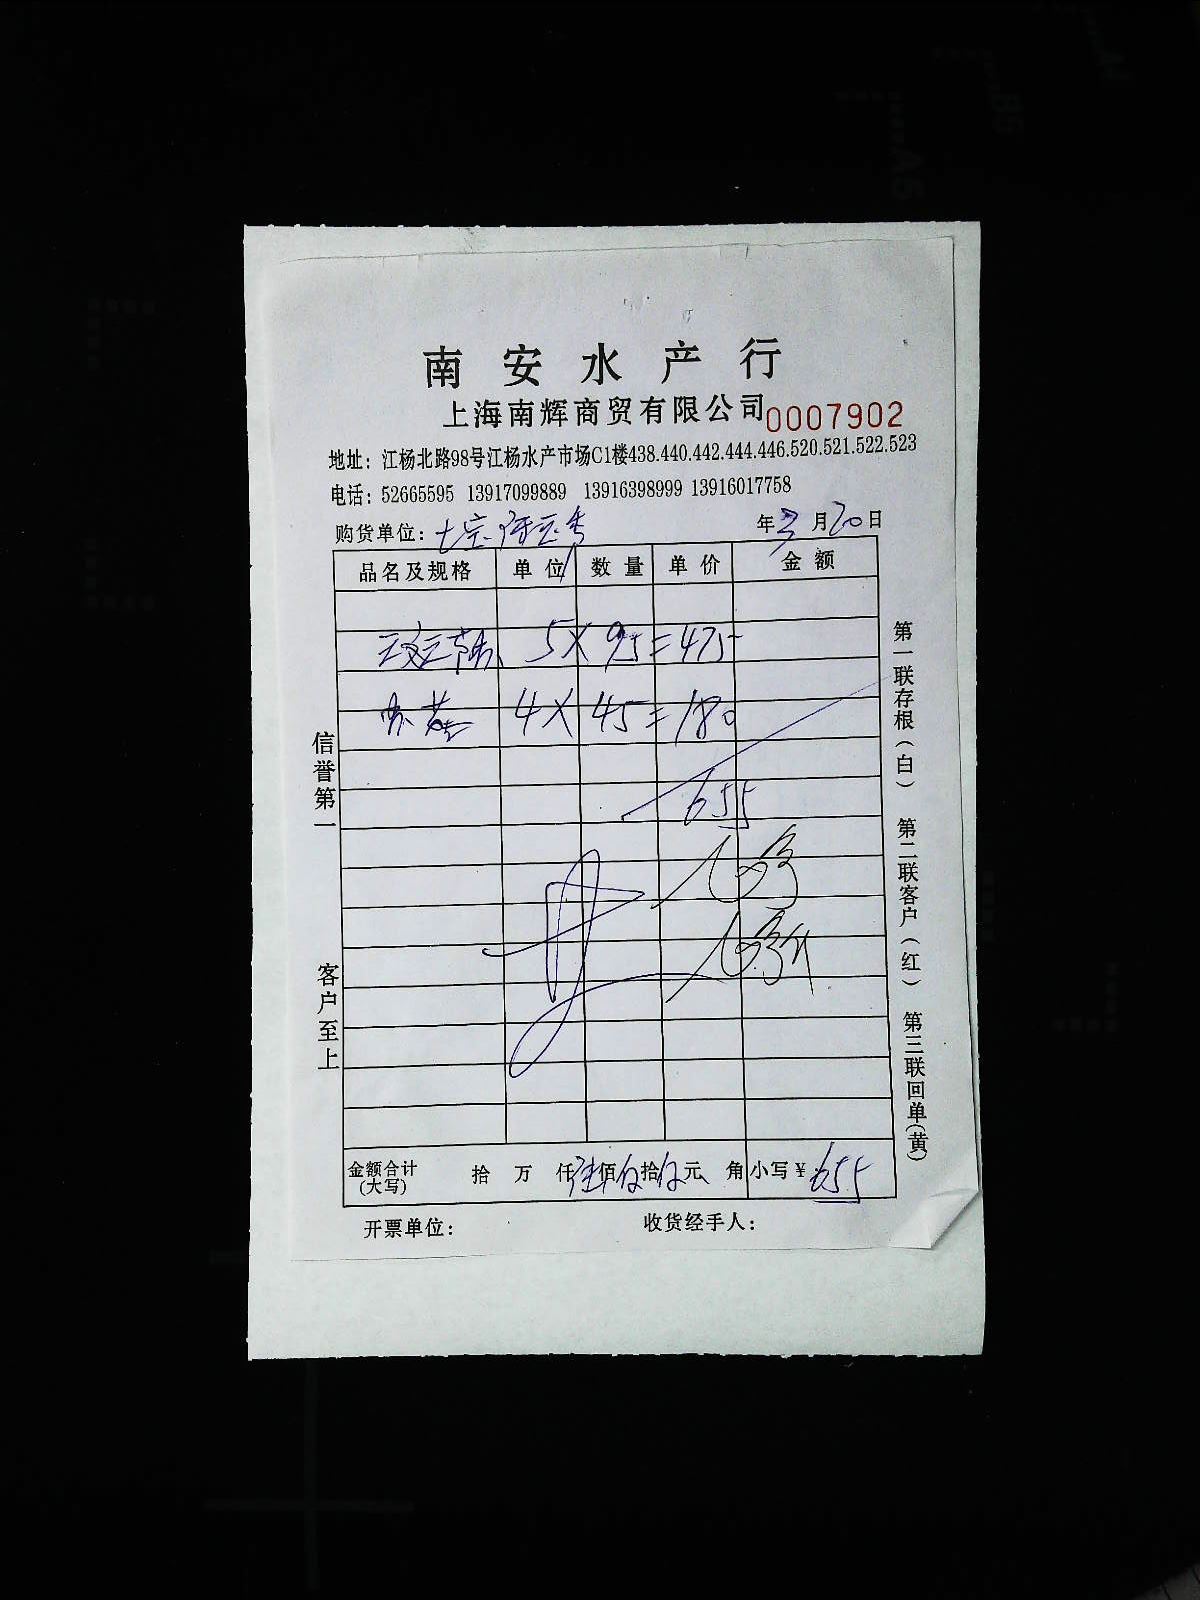 南安水产行
上海南辉商贸有限公司 0007902
地址：江杨北路98号江杨水产市场C1楼438.440.442.444.446.520.521.522.523
电话：52665595 13917099889 13916398999 13916017758
购货单位： 年 3 月 20 日
品名及规格 单位 数量 单价 金额
5 X 95 = 475
4 X 45 = 180
655
金额合计(大写) 拾 万 仟 陆 佰 伍 拾 伍 元 角 小写￥：655
开票单位： 收货经手人：
信誉第一 客户至上
第一联存根(白) 第二联客户(红) 第三联回单(黄)